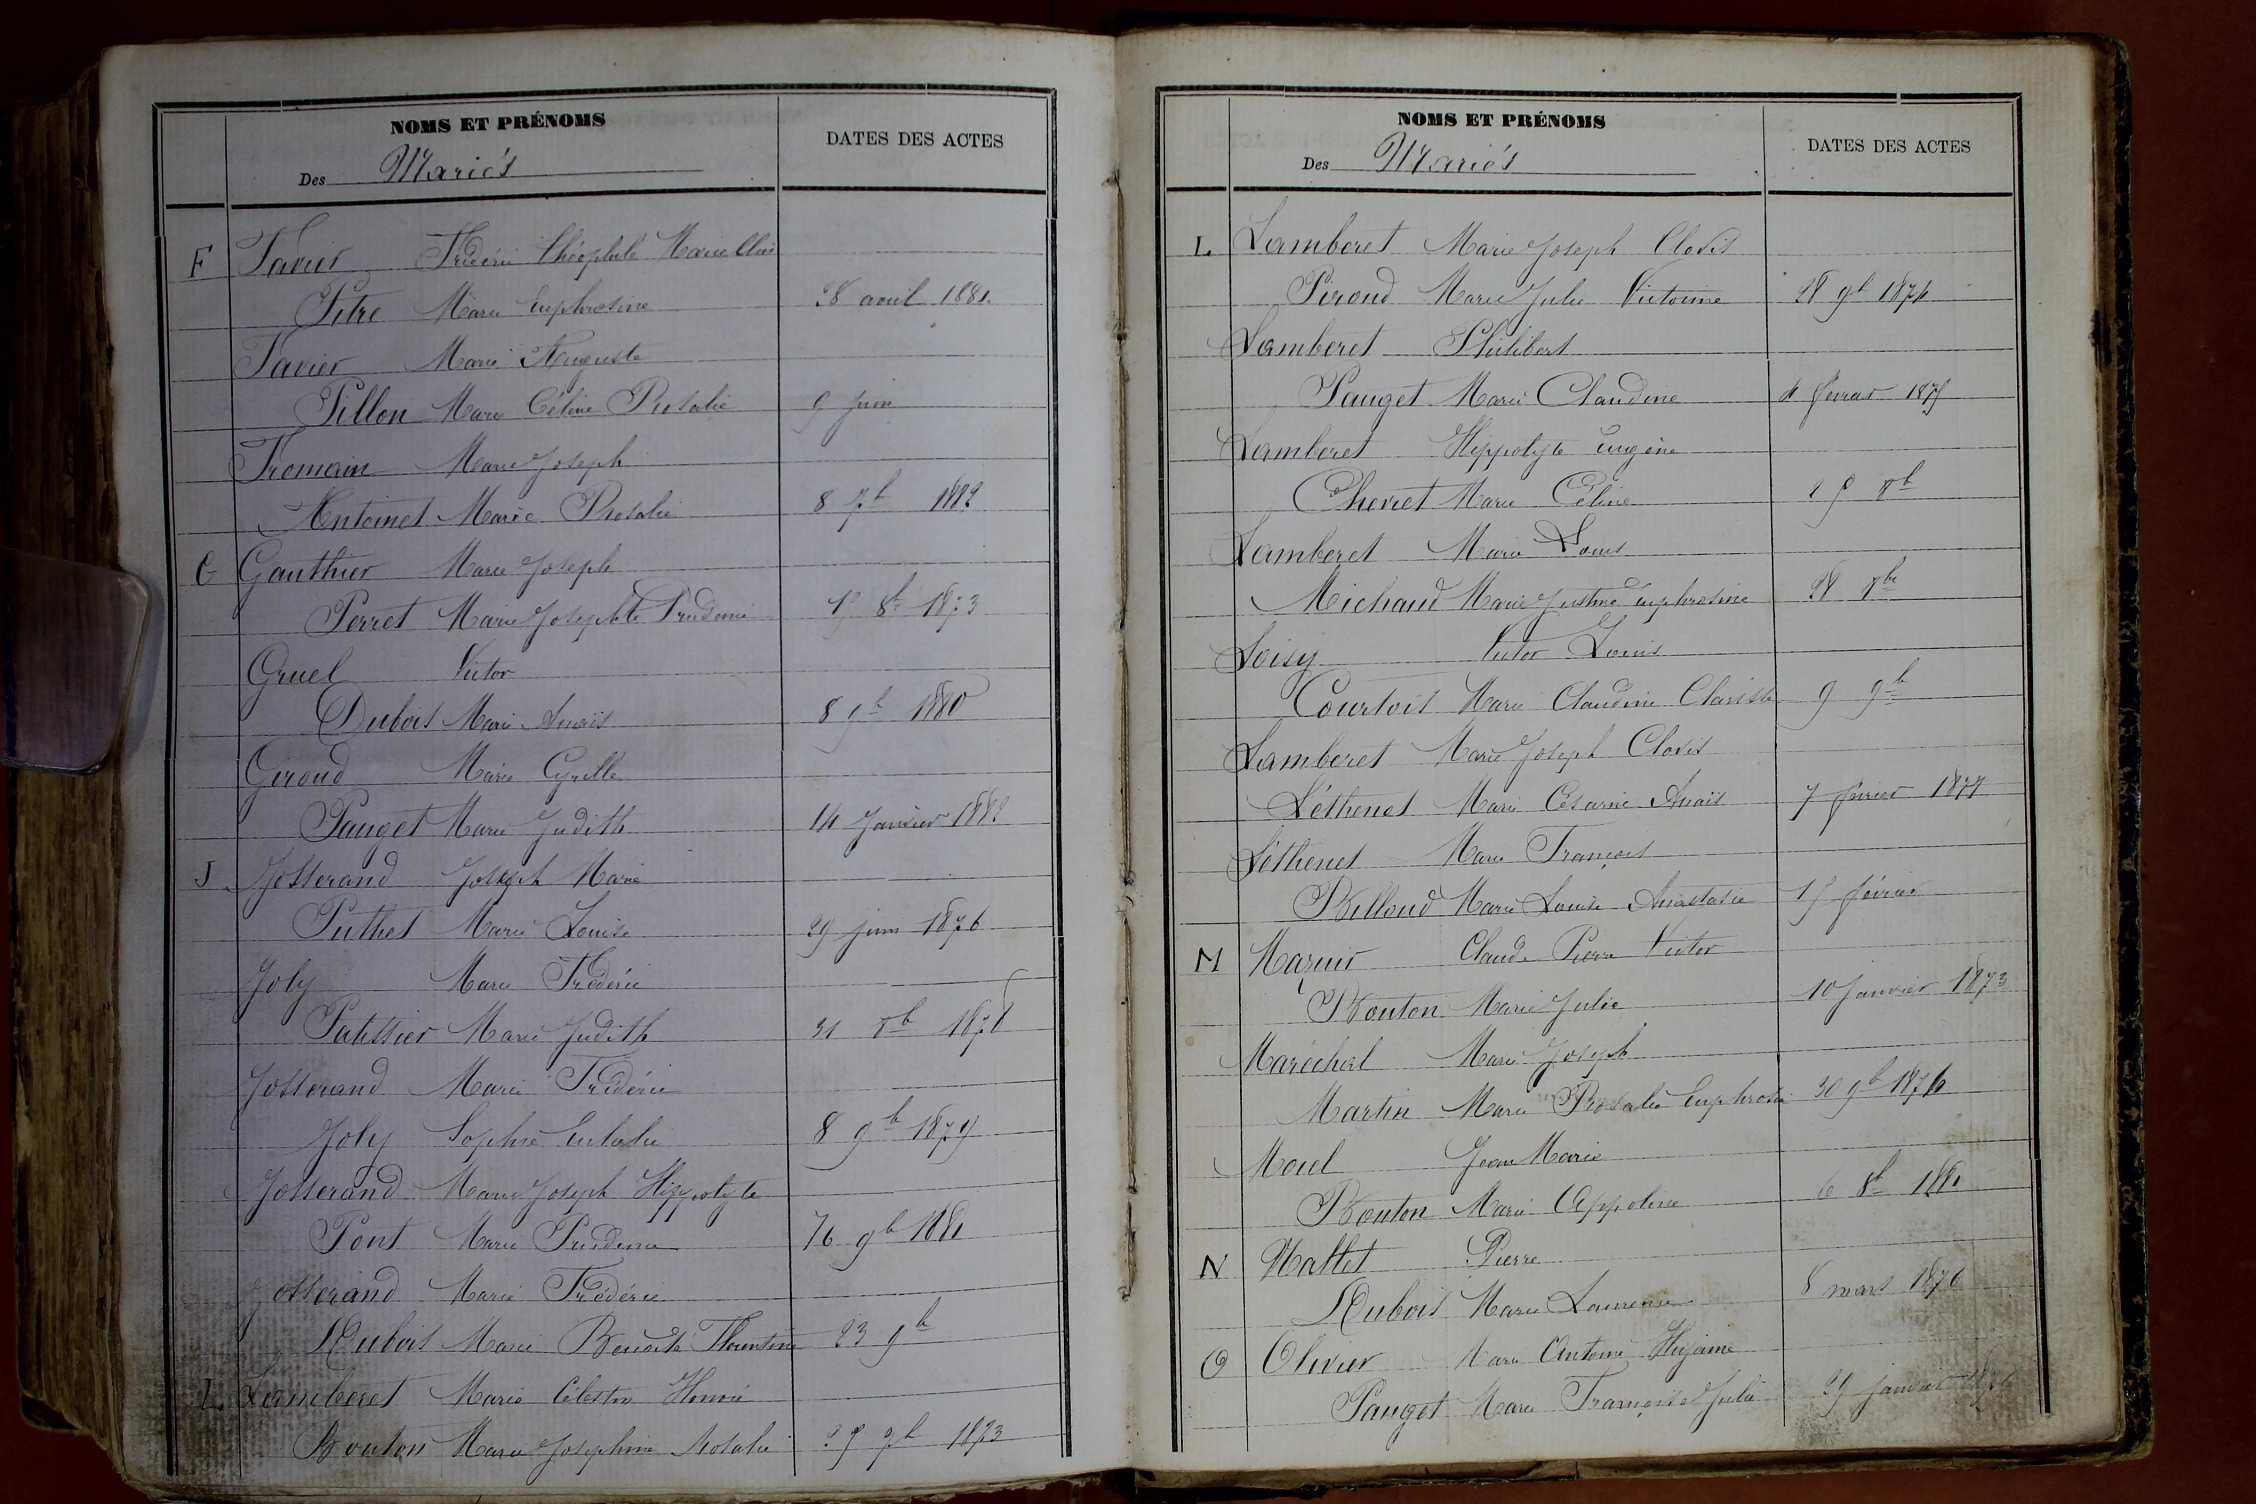 NOMS ET PRÉNOMS
Des Mariés
DATES DES ACTES
F Favier Frédéric Théophile Marcellin
Pitre Marie Euphrosine 28 avril 1881
Favier Marie Auguste
Pillon Marie Céline Rosalie 9 juin
Fromain Marie Joseph
Antoinet Marie Rosalie 8 7b 1882
G Gauthier Marie Joseph
Perret Marie Josephte Prudence 8b 1873
Gruel Victor
Dubois Marie Anaïs 8 9b 1880
Giroud Marie Cyrille
Pauget Marie Judith 14 Janvier 1882
J Josserand Joseph Marie
Puthet Marie Louise 29 juin 1876
Joly Marie Frédéric
Patissier Marie Judith 31 Xb 1878
Josserand Marie Frédéric
Joly Sophie Eulalie 8 9b 1879
Josserand Marie Joseph Hippolyte
Pont Marie Prudence 16 9b 1881
Josserand Marie Frédéric
Dubois Marie Benoite Florentine 23 9b
L Lamberet Marie Célestin Honoré
Bouton Marie Josephine Rosalie 1873
NOMS ET PRÉNOMS
Des Mariés
DATES DES ACTES
L Lamberet Marie Joseph Clovis
Piroud Marie Julie Victorine 28 9b 1874
Lamberet Philibert
Pauget Marie Claudine 4 février 1875
Lamberet Hippolyte Eugène
Chevret Marie Céline Xb
Lamberet Marie Louis
Michaud Marie Justine Euphrosine 28 Xbre
Loisy Victor Louis
Courtois Marie Claudine Clarisse 9 9b
Lamberet Marie Joseph Clovis
Léthenet Marie Césarie Anaïs 7 février 1877
Léthenet Marie François
Billoud Marie Louise Anastasie 15 février
M Marguir Claude Pierre Victor
Bouton Marie Julie 10 Janvier 1873
Maréchal Marie Joseph
Martin Marie Rosalie Euphrosie 30 9b 1876
Morel Jean Marie
Bouton Marie Appoline 6 8b 1881
N Nallet Pierre
Dubois Marie Laurence 8 mars 1876
O Olivier Marie Antoine Hugaine
Pauget Marie Françoise Julie 29 janvier